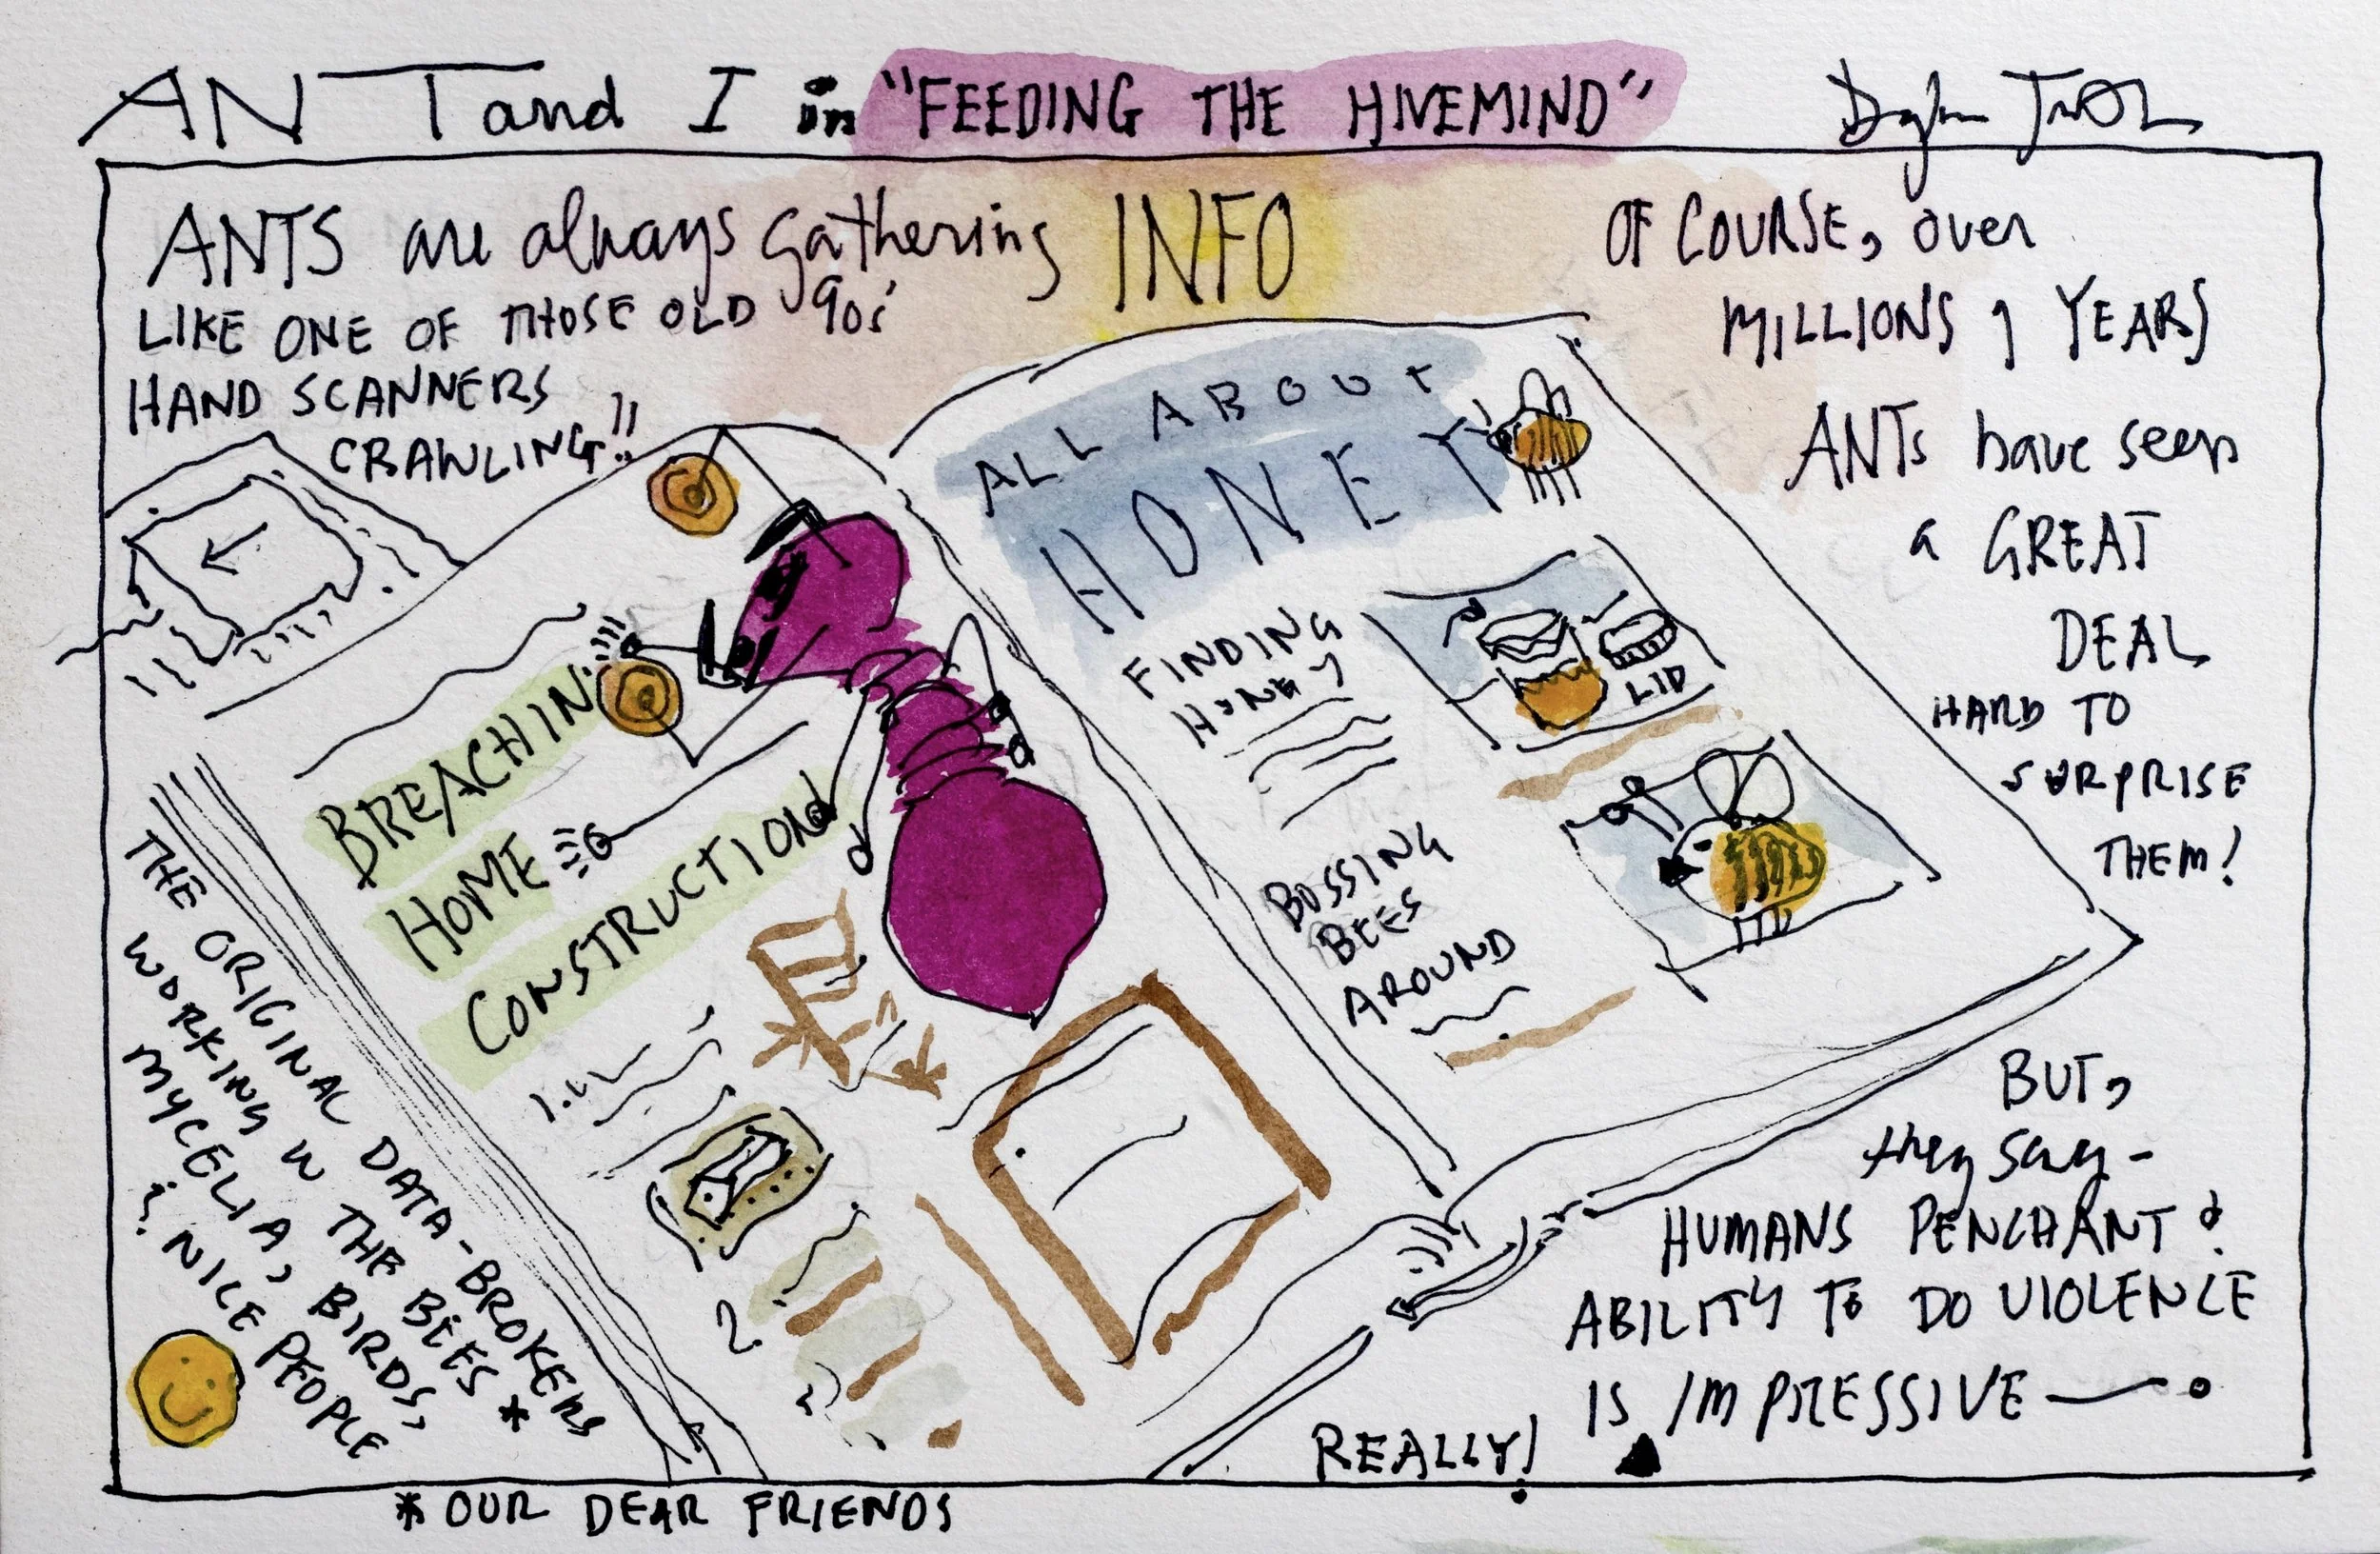 ANT and I in "FEEDING THE HIVEMIND"
ANTS are always gathering INFO
LIKE ONE OF THOSE OLD '90s'
HAND SCANNERS
CRAWLING!!
OF COURSE, over
MILLIONS of YEARS
ANTs have seen
a GREAT
DEAL
HARD TO
SURPRISE
THEM!
ALL ABOUT
HONEY
FINDING
HONEY
LID
BOSSING
BEES
AROUND
BREACHING
HOME
CONSTRUCTION
1.
2.
THE ORIGINAL DATA-BROKERS
WORKING W THE BEES *
MYCELIA, BIRDS,
& NICE PEOPLE
BUT,
they say -
HUMANS PENCHANT &
ABILITY TO DO VIOLENCE
IS IMPRESSIVE
REALLY!
* OUR DEAR FRIENDS